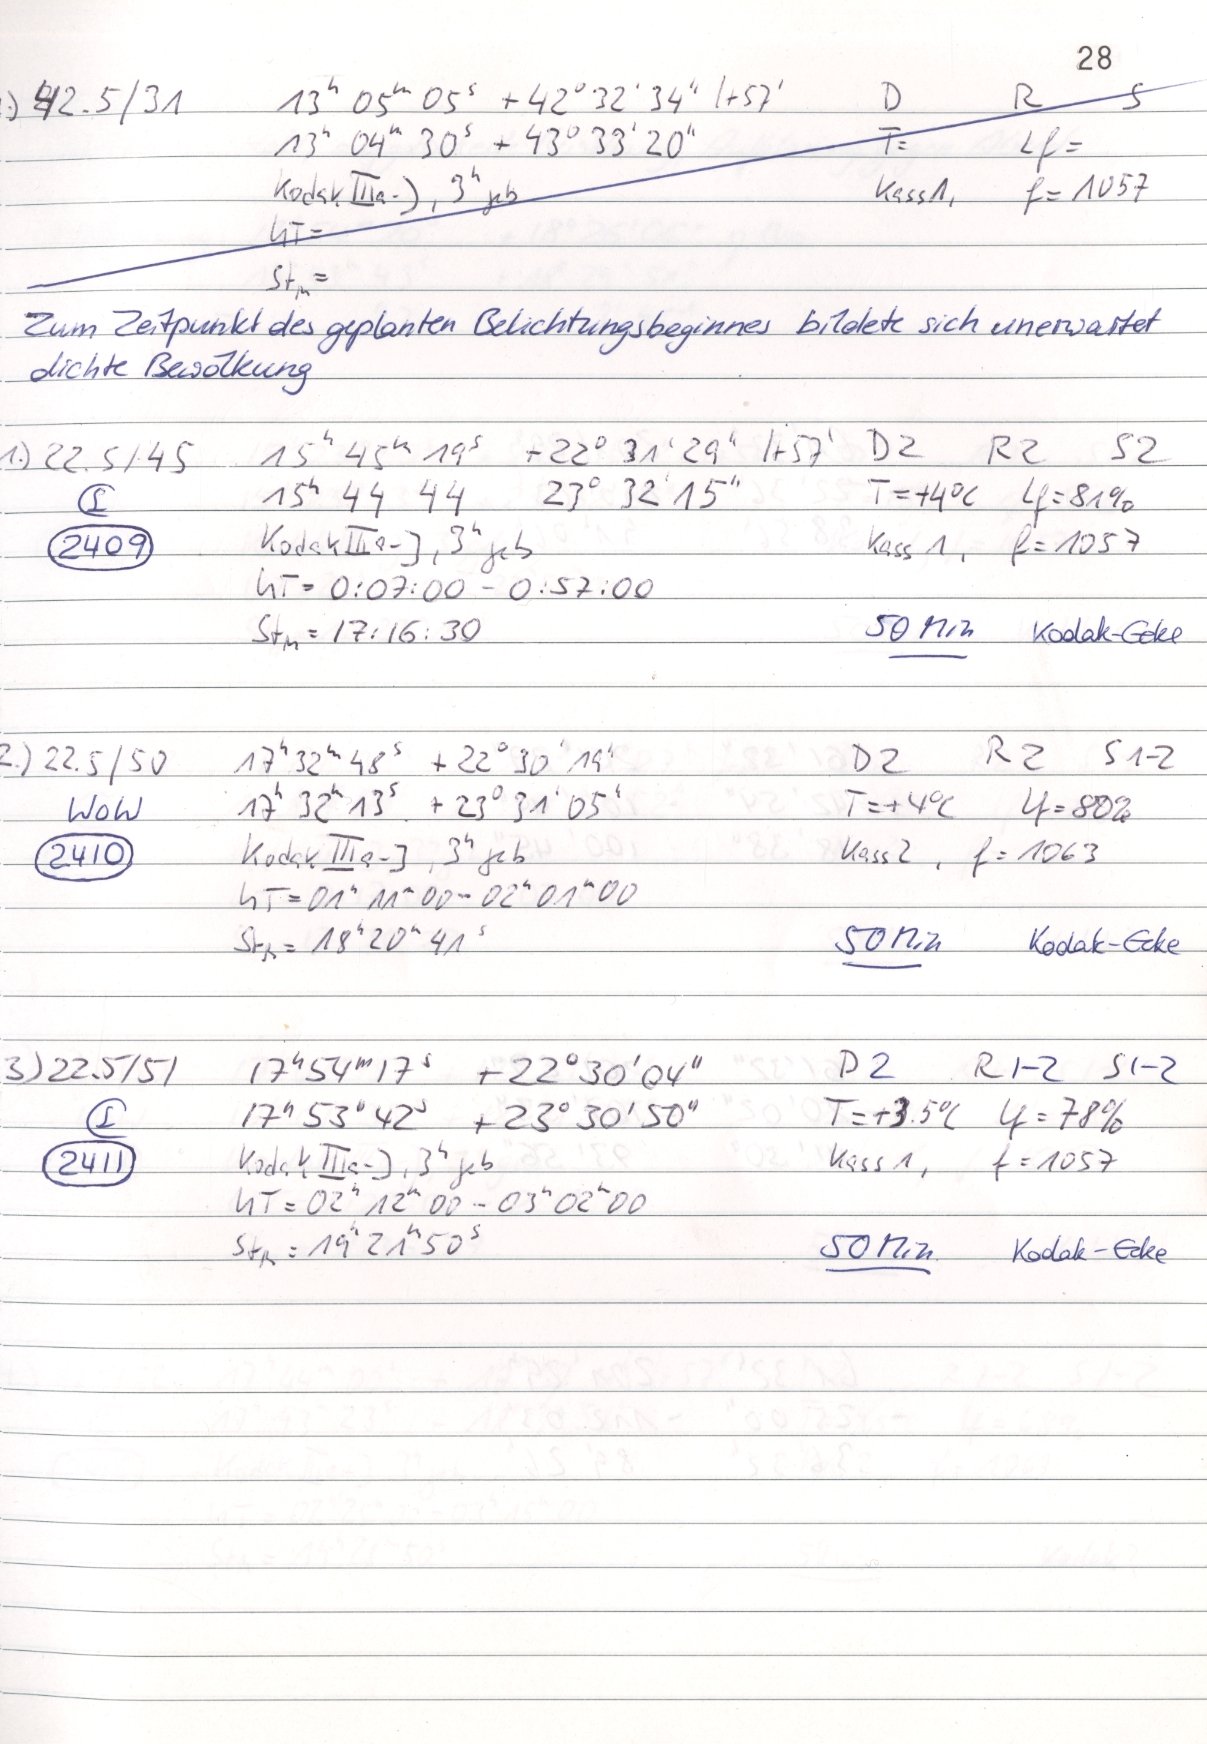 28
1.) 42.5/31 13ʰ 05ᵐ 05ˢ +42° 32' 34" /+57' D R S
13ʰ 04ᵐ 30ˢ + 43° 33' 20" T= Lf=
Kodak IIIa-J, 3ʰ geb Kass 1, f= 1057
UT=
Stₘ=
Zum Zeitpunkt des geplanten Belichtungsbeginnes bildete sich unerwartet
dichte Bewölkung
1.) 22.5/45 15ʰ 45ᵐ 19ˢ +22° 31' 29" /+57' D2 R2 S2
I 15ʰ 44 44 23° 32' 15" T=+4°C Lf=81%
2409 Kodak IIIa-J, 3ʰ geb Kass 1, f=1057
UT= 0:07:00 - 0:57:00
Stₘ = 17:16:30 50 Min Kodak-Ecke
2.) 22.5/50 17ʰ 32ᵐ 48ˢ +22° 30' 19" D2 R2 S1-2
WoW 17ʰ 32ᵐ 13ˢ +23° 31' 05" T=+4°C Lf=80%
2410 Kodak IIIa-J, 3ʰ geb Kass 2, f=1063
UT=01ʰ 11ᵐ 00 - 02ʰ 01ᵐ 00
Stₘ = 18ʰ 20ᵐ 41ˢ 50 Min Kodak-Ecke
3.) 22.5/51 17ʰ 54ᵐ 17ˢ +22° 30' 04" D2 R1-2 S1-2
I 17ʰ 53ᵐ 42ˢ +23° 30' 50" T=+3.5°C Lf=78%
2411 Kodak IIIa-J, 3ʰ geb Kass 1, f=1057
UT=02ʰ 12ᵐ 00 - 03ʰ 02ᵐ 00
Stₘ = 19ʰ 21ᵐ 50ˢ 50 Min Kodak-Ecke